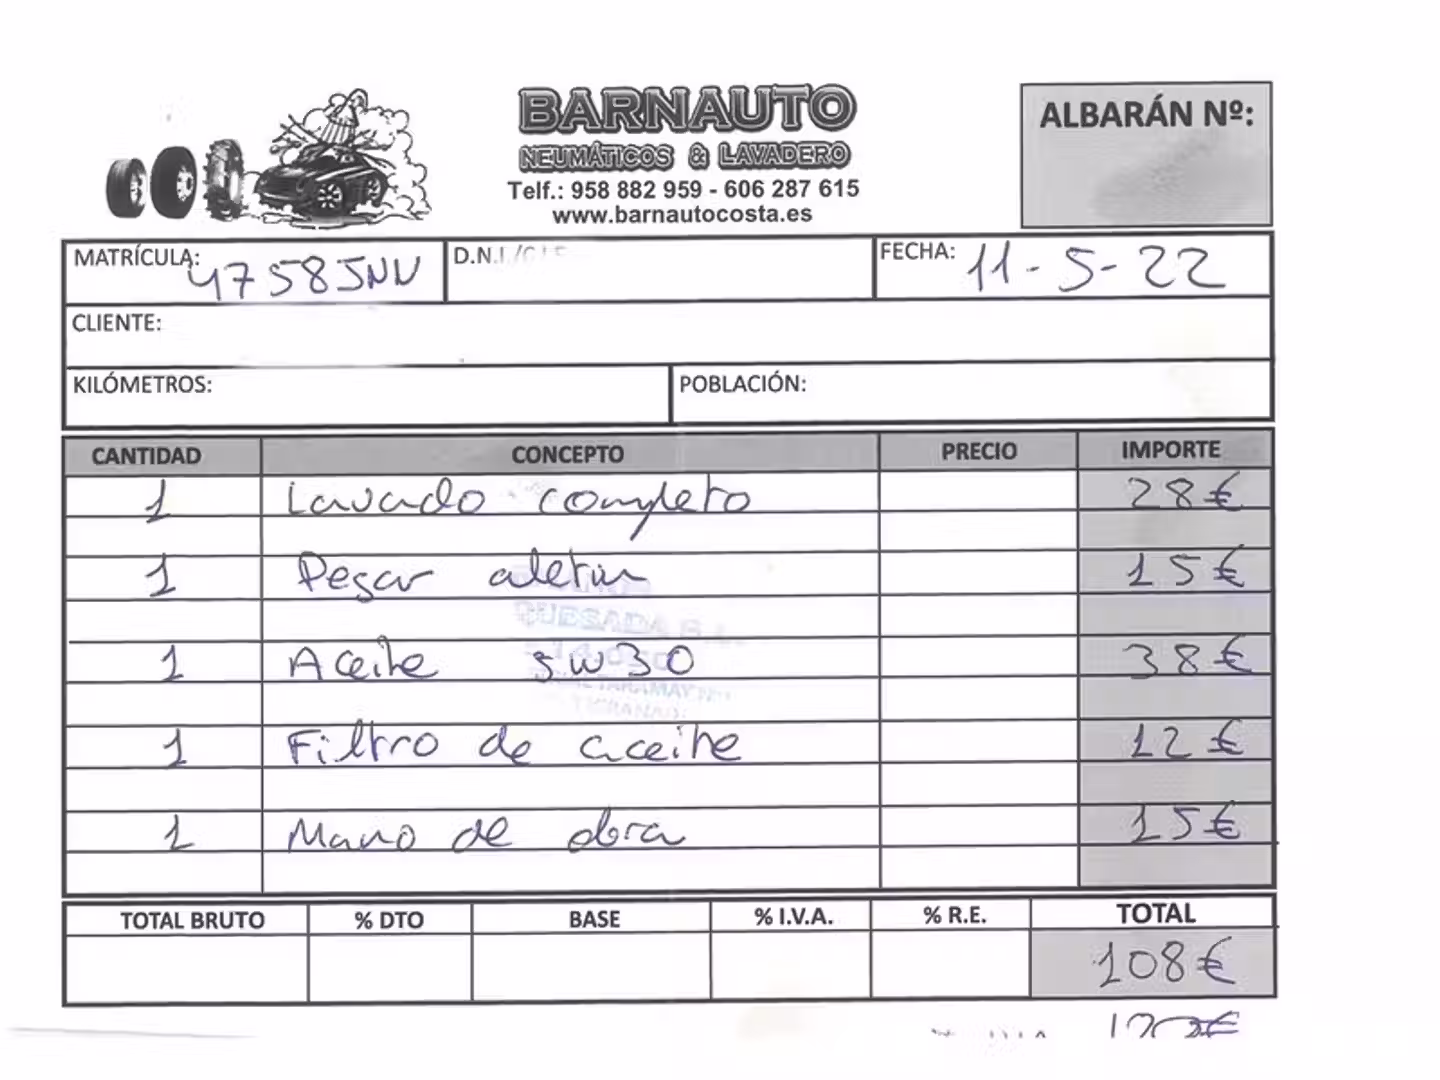 BARNAUTO
NEUMÁTICOS & LAVADERO
Telf.: 958 882 959 - 606 287 615
www.barnautocosta.es
ALBARÁN Nº:
MATRÍCULA: 4758JNV
D.N.I./C.I.F.
FECHA: 11-5-22
CLIENTE:
KILÓMETROS:
POBLACIÓN:
CANTIDAD CONCEPTO PRECIO IMPORTE
1 Lavado completo 28€
1 Pegar aletin 15€
1 Aceite 5W30 38€
1 Filtro de aceite 12€
1 Mano de obra 15€
QUESADA S.L.
TOTAL BRUTO % DTO BASE % I.V.A. % R.E. TOTAL
108€